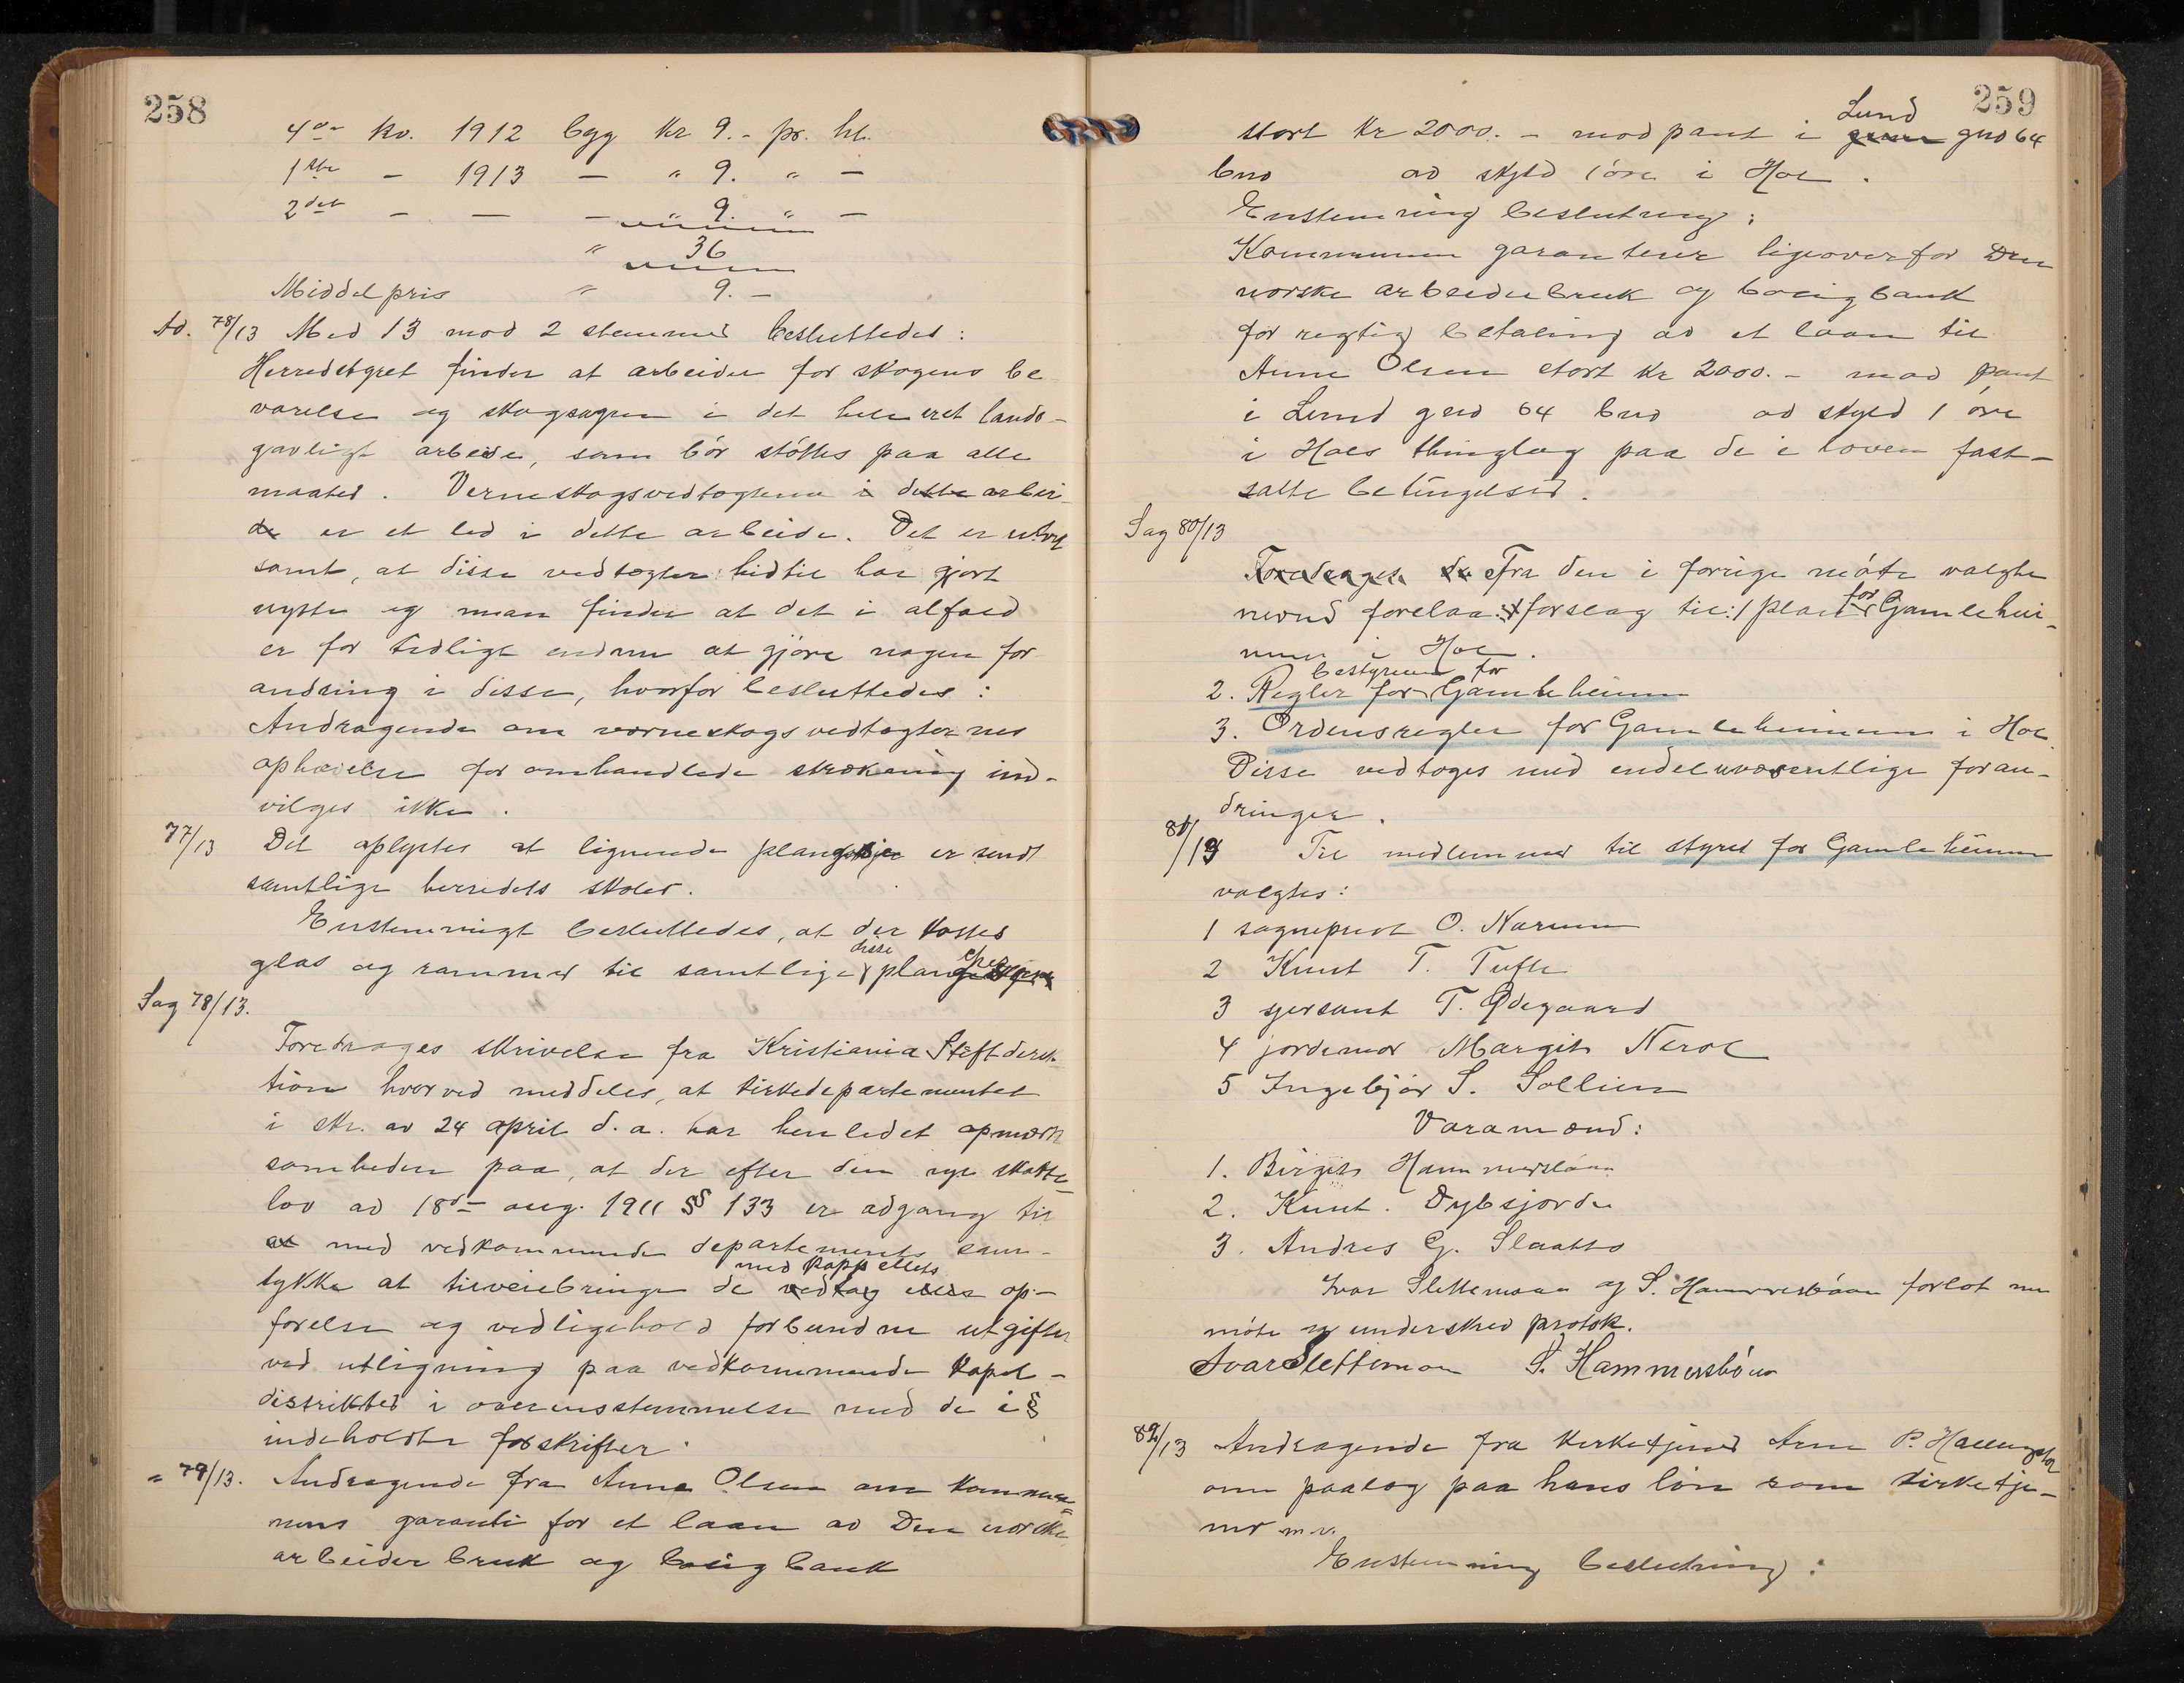 258
4de kv. 1912 bygg kr 9.- pr. hl.
1ste - 1913 - " 9. " -
2det - - - " 9. " -
" 36
Middelpris " 9.-
Ad. 78/13 Med 13 mod 2 stemmer besluttedes:
Herredstyret finder at arbeidet for skogens be
varelse og skogsagen i det hele er et lands-
gavnligt arbeide, som bør støttes paa alle
maater. Verneskogsvedtægterne i dette arbei-
de er et led i dette arbeide. Det er utvil
somt, at disse vedtægter hidtil har gjort
nytte og man finder at det i alfald
er for tidligt endnu at gjøre nogen for
andring i disse, hvorfor besluttedes:
Andragende om verneskogsvedtægternes
ophævelse for omhandlede strækning ind-
vilges ikke.
77/13 Det oplystes at lignende er sendt
samtlige herredets skoler.
Enstemmigt besluttedes, at der kostes
glas og rammer til samtlige disse
Sag 78/13.
Foredrages skrivelse fra Kristiania Stiftsdirek
tion hvorved meddeles, at kirkedepartementet
i skr. av 24 april d. a. har henledet opmærk
somheden paa, at der efter den nye skatte
lov av 18de aug. 1911 § 133 er adgang til
at med vedkommende departements sam-
tykke at tilveiebringe de med kappellets op-
førelse og vedligehold forbundne utgifter
ved utligning paa vedkommende kapel-
distrikter i overensstemmelse med de i §
indeholdte forskrifter.
" 79/13. Andragende fra Anne Olsen om kommu
nens garanti for et laan av Den norske
arbeiderbruk og boligbank
259
stort kr 2000.- mod pant i Lund gno 64
bno av skyld 1 øre i Hol.
Enstemmig beslutning:
Kommunen garanterer ligeoverfor Den
norske arbeiderbruk og boligbank
for rigtig betaling av et laan til
Anne Olsen stort kr 2000.- mod pant
i Lund gno 64 bno av skyld 1 øre
i Hols thinglag paa de i loven fast-
satte betingelser.
Sag 80/13
Foredrages de Fra den i forrige møte valgte
nevnd forelaa: forslag til:1 plan for Gamlehei-
men i Hol.
2. Regler for bestyreren for Gamleheimen
3. Ordensregler for Gamleheimen i Hol.
Disse vedtoges med endel uvæsentlige foran-
dringer.
81/13 Til medlemmer til styret for Gamleheimen
valgtes:
1 sogneprest O. Narum
2 Knut T. Tufte
3 sersjant T. Ødegaard
4 jordemor Margit Nerol
5 Ingebjør S. Sollien
Varamænd:
1. Birgit Hammersbøen
2. Knut Dybsjorde
3. Andres G. Slaatto
Ivar Slettemoen og S. Hammersbøen forlot nu
møte og underskrev protok.
Ivar Slettemoen S. Hammersbøen
82/13 Andragende fra kirketjener Arne P.
om paalæg paa hans løn som kirketje-
ner m.v.
Enstemmig beslutning: